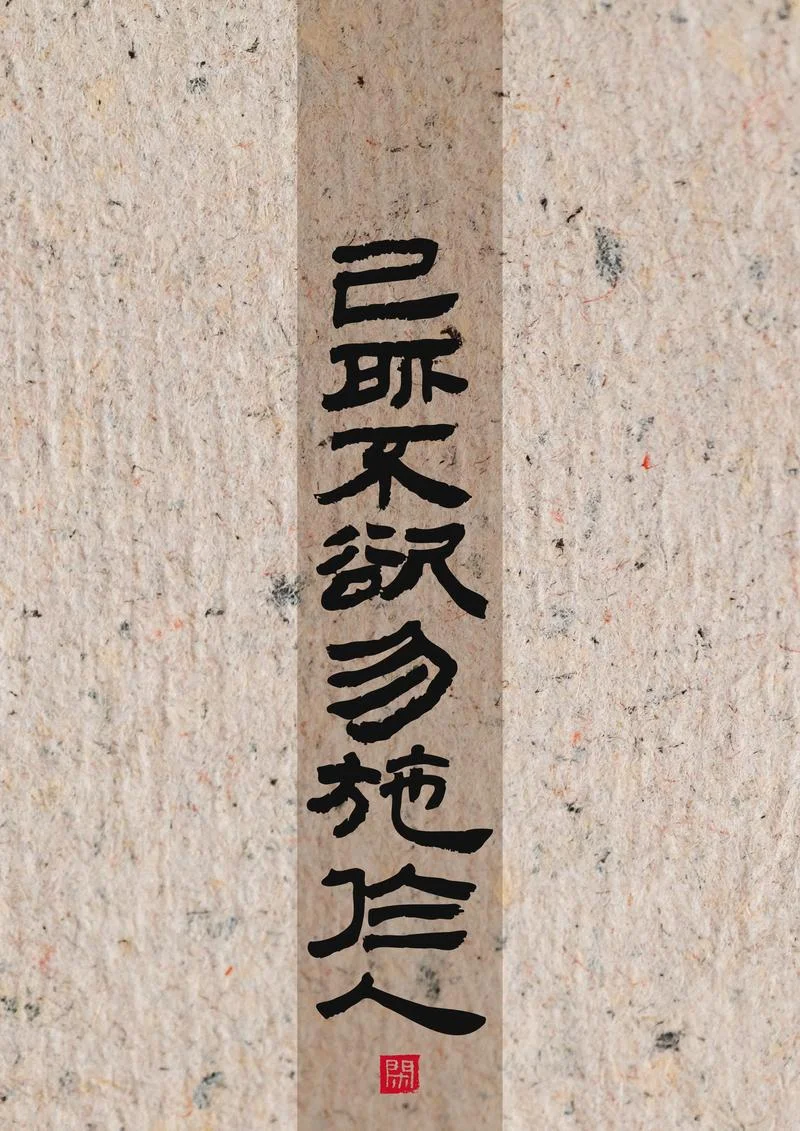 己所不欲勿施於人